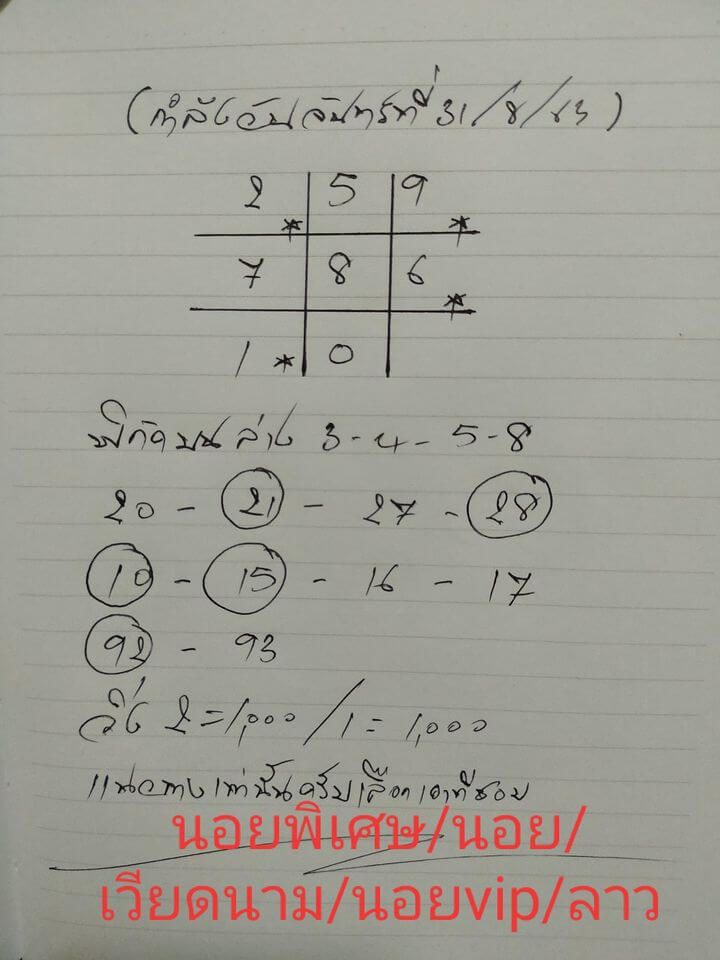 (กำลังวันจันทร์ที่ 31/8/63)
2 * 5 9 *
7 8 6 *
1 * 0
พิกัดบนล่าง 3-4-5-8
20 - 21 - 27 - 28
10 - 15 - 16 - 17
92 - 93
วิ่ง 2 = 1,000 / 1 = 1,000
แนวทางเท่านั้นครับเลือกเอาที่ชอบ
นอยพิเศษ/นอย/
เวียดนาม/นอยvip/ลาว